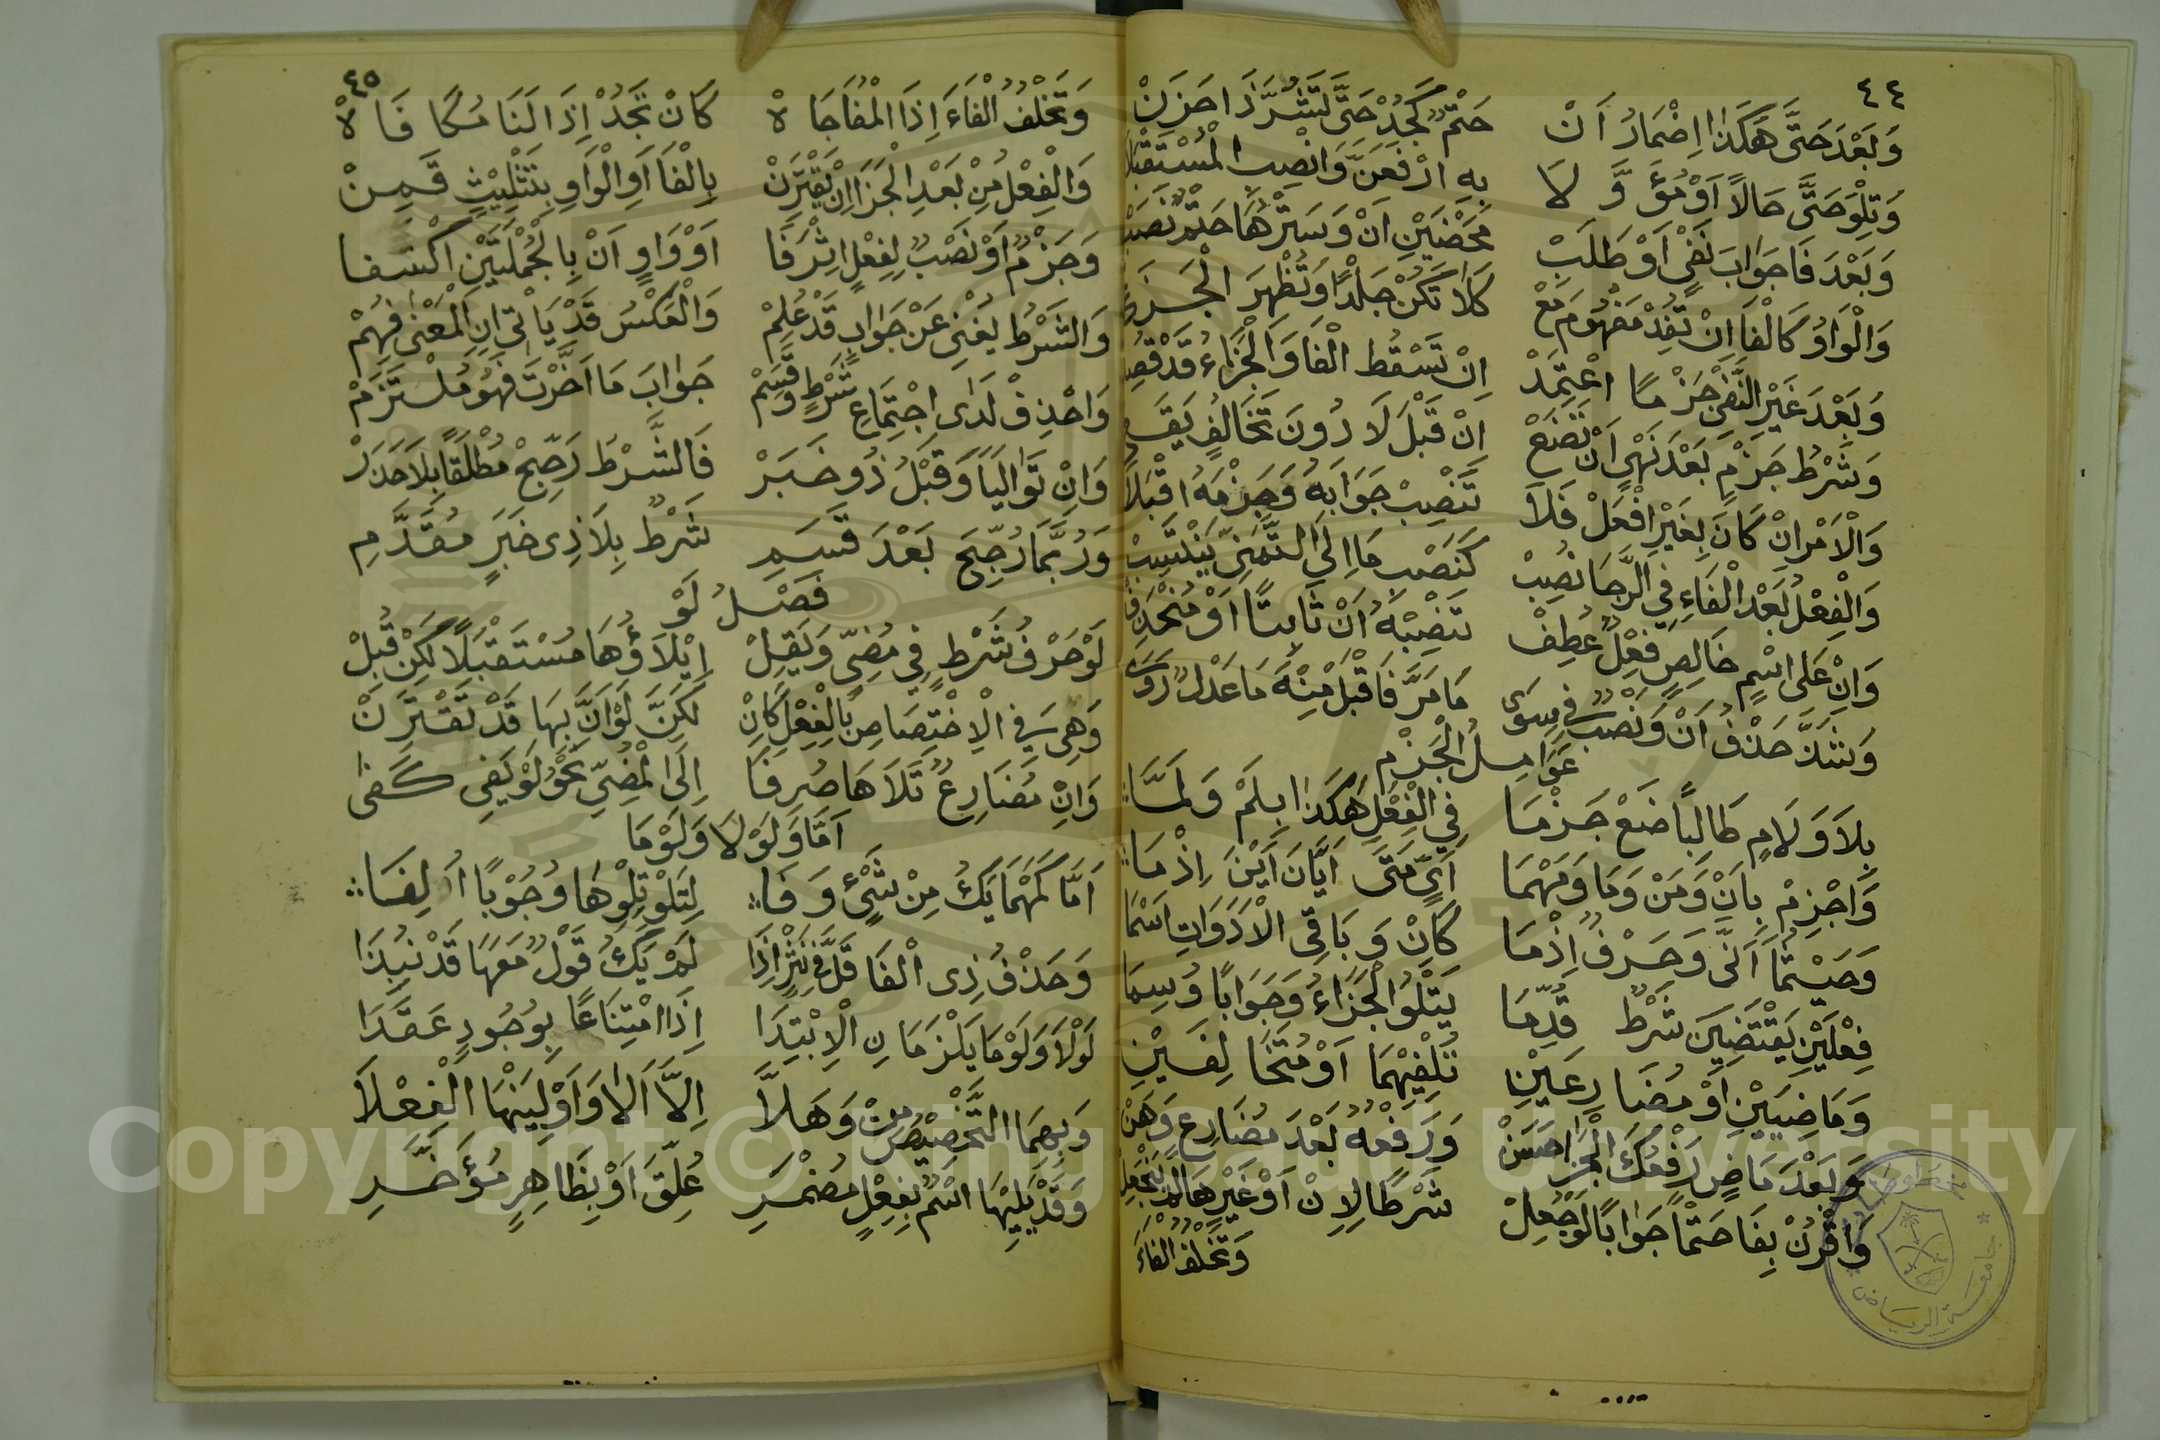 ٤٤
وَبَعْدَ حَتَّى هَكَذَا اِضْمَارُ اَنْ حَتْمٌ كَجُدْ حَتَّى تَسُرَّ ذَا حَزَنْ
وَتِلْوَ حَتَّى حَالاً اَوْ مُؤَوَّلَا بِهِ ارْفَعَنَّ وَانْصِبِ الْمُسْتَقْبَلَا
وَبَعْدَ فَا جَوَابَ نَفْىٍ اَوْ طَلَبْ مَحْضَيْنِ اَنْ وَسَتْرُهَا حَتْمٌ نَصَبْ
وَالْوَاوُ كَالْفَا اِنْ تُفِدْ مَفْهُومَ مَعْ كَلَا تَكُنْ جَلْدًا وَتُظْهِرَ الْجَزَعْ
وَبَعْدَ غَيْرِ النَّفْىِ جَزْمًا اعْتَمِدْ اِنْ تَسْقُطِ الْفَا وَالْجَزَاءُ قَدْ قُصِدْ
وَشَرْطُ جَزْمٍ بَعْدَ نَهْىٍ اَنْ تَضَعْ اِنْ قَبْلَ لَا دُونَ تَخَالُفٍ يَقَعْ
وَالْاَمْرُ اِنْ كَانَ بِغَيْرِ افْعَلْ فَلَا تَنْصِبْ جَوَابَهُ وَجَزْمَهُ اقْبَلَا
وَالْفِعْلُ بَعْدَ الْفَاءِ فِي الرَّجَا نُصِبْ كَنَصْبِ مَا اِلَى التَّمَنِّى يَنْتَسِبْ
وَاِنْ عَلَى اسْمٍ خَالِصٍ فِعْلٌ عُطِفْ تَنْصِبُهُ اَنْ ثَابِتًا اَوْ مُنْحَذِفْ
وَشَذَّ حَذْفُ اَنْ وَنَصْبٌ فِي سِوَى مَا مَرَّ فَاقْبَلْ مِنْهُ مَا عَدْلٌ رَوَى
عَوَامِلُ الْجَزْمِ
بِلَا وَلَامٍ طَالِبًا ضَعْ جَزْمَا فِي الْفِعْلِ هَكَذَا بِلَمْ وَلَمَّا
وَاجْزِمْ بِاِنْ وَمَنْ وَمَا وَمَهْمَا اَىٍّ مَتَى اَيَّانَ اَيْنَ اِذْمَا
وَحَيْثُمَا اَنَّى وَحَرْفٌ اِذْمَا كَاِنْ وَبَاقِى الْاَدَوَاتِ اَسْمَا
فِعْلَيْنِ يَقْتَضِيَنَ شَرْطٌ قُدِّمَا يَتْلُو الْجَزَاءُ وَجَوَابًا وُسِمَا
وَمَاضِيَيْنِ اَوْ مُضَارِعَيْنِ تُلْفِيهِمَا اَوْ مُتَخَالِفَيْنِ
وَبَعْدَ مَاضٍ رَفْعُكَ الْجَزَا حَسَنْ وَرَفْعُهُ بَعْدَ مُضَارِعٍ وَهَنْ
وَاقْرُنْ بِفَا حَتْمًا جَوَابًا لَوْ جُعِلْ شَرْطًا لِاِنْ اَوْ غَيْرِهَا لَمْ يَنْجَعِلْ
وَتَخْلُفُ الْفَاءَ
٤٥
وَتَخْلُفُ الْفَاءَ اِذَا الْمُفَاجَاةْ كَاِنْ تَجُدْ اِذَا لَنَا مُكَافَاةْ
وَالْفِعْلُ مِنْ بَعْدِ الْجَزَا اِنْ يَقْتَرِنْ بِالْفَا اَوِ الْوَاوِ بِتَثْلِيْثٍ قَمِنْ
وَجَزْمٌ اَوْ نَصْبٌ لِفِعْلٍ اِثْرَ فَا اَوْ وَاوٍ اَنْ بِالْجُمْلَتَيْنِ اكْتُنِفَا
وَالشَّرْطُ يُغْنِى عَنْ جَوَابٍ قَدْ عُلِمْ وَالْعَكْسُ قَدْ يَاْتِى اِنِ الْمَعْنَى فُهِمْ
وَاحْذِفْ لَدَى اجْتِمَاعِ شَرْطٍ وَقَسَمْ جَوَابَ مَا اَخَّرْتَ فَهُوَ مُلْتَزَمْ
وَاِنْ تَوَالَيَا وَقَبْلُ ذُو خَبَرْ فَالشَّرْطُ رَجِّحْ مُطْلَقًا بِلَا حَذَرْ
وَرُبَّمَا رُجِّحَ بَعْدَ قَسَمِ شَرْطٌ بِلَا ذِى خَبَرٍ مُقَدَّمِ
فَصْلُ لَوْ
لَوْ حَرْفُ شَرْطٍ فِي مُضِىٍّ وَيَقِلْ اِيْلَاؤُهَا مُسْتَقْبَلًا لَكِنْ قُبِلْ
وَهِىَ فِي الْاِخْتِصَاصِ بِالْفِعْلِ كَاِنْ لَكِنَّ لَوْ اَنَّ بِهَا قَدْ تَقْتَرِنْ
وَاِنْ مُضَارِعٌ تَلَاهَا صُرِفَا اِلَى الْمُضِىِّ نَحْوُ لَوْ يَفِى كَفَى
اَمَّا وَلَوْلَا وَلَوْمَا
اَمَّا كَمَهْمَا يَكُ مِنْ شَىْءٍ وَفَا لِتِلْوِ تِلْوِهَا وُجُوْبًا اُلِفَا
وَحَذْفُ ذِى الْفَا قَلَّ فِي نَثْرٍ اِذَا لَمْ يَكُ قَوْلٌ مَعَهَا قَدْ نُبِذَا
لَوْلَا وَلَوْمَا يَلْزَمَانِ الْاِبْتِدَا اِذَا امْتِنَاعًا بِوُجُودٍ عَقَدَا
وَبِهِمَا التَّحْضِيْضَ مِزْ وَهَلَّا اِلَّا اَلَا وَاَوْلِيَنْهَا الْفِعْلَا
وَقَدْ يَلِيْهَا اسْمٌ بِفِعْلٍ مُضْمَرِ عُلِّقَ اَوْ بِظَاهِرٍ مُؤَخَّرِ
جامعة الرياض
Copyright © King Saud University